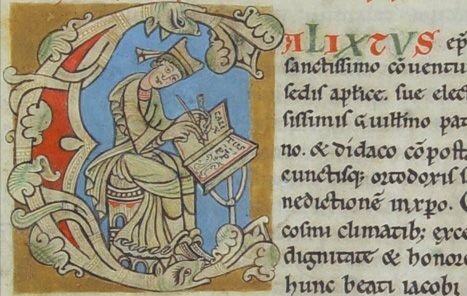 CALIXTVS ep̄
sanctissimo cōuentu
sedis aplice. sue elec
sissimis Guillmo pat
no. & didaco cōpost
cunctisq; ortodoxis
nedictionē in xp̄o. C
cosmi climatib; exce
dignitate & honore
hunc beati iacobi